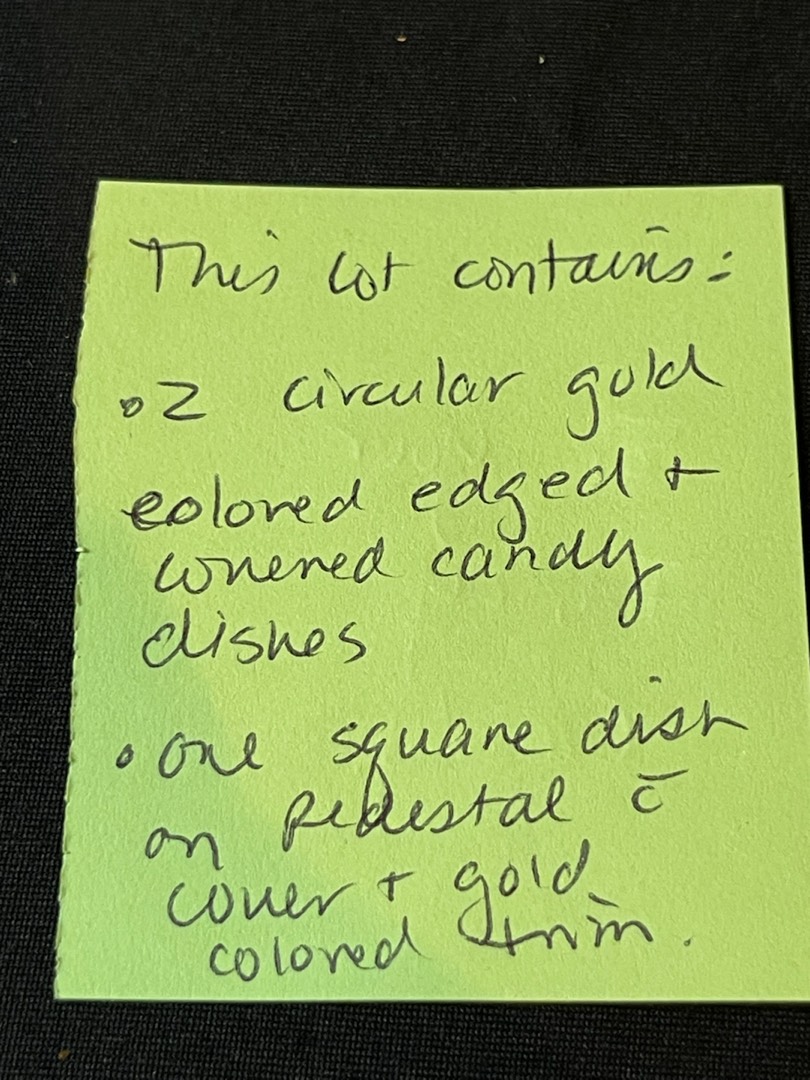 This lot contains:
• 2 circular gold
colored edged +
covered candy
dishes
• one square dish
on pedestal c̄
cover + gold
colored trim.